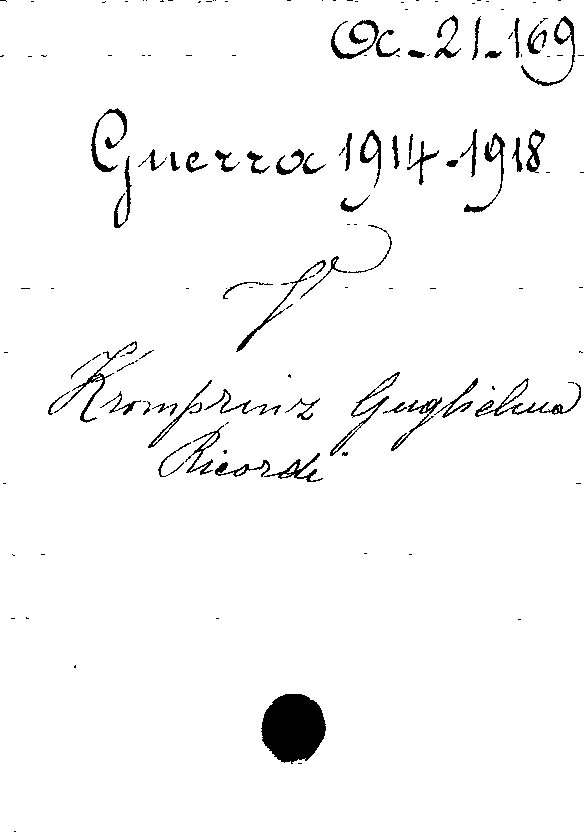 Oc-21-169
Guerra 1914-1918
V
Kromprinz Guglielmo
Ricordi